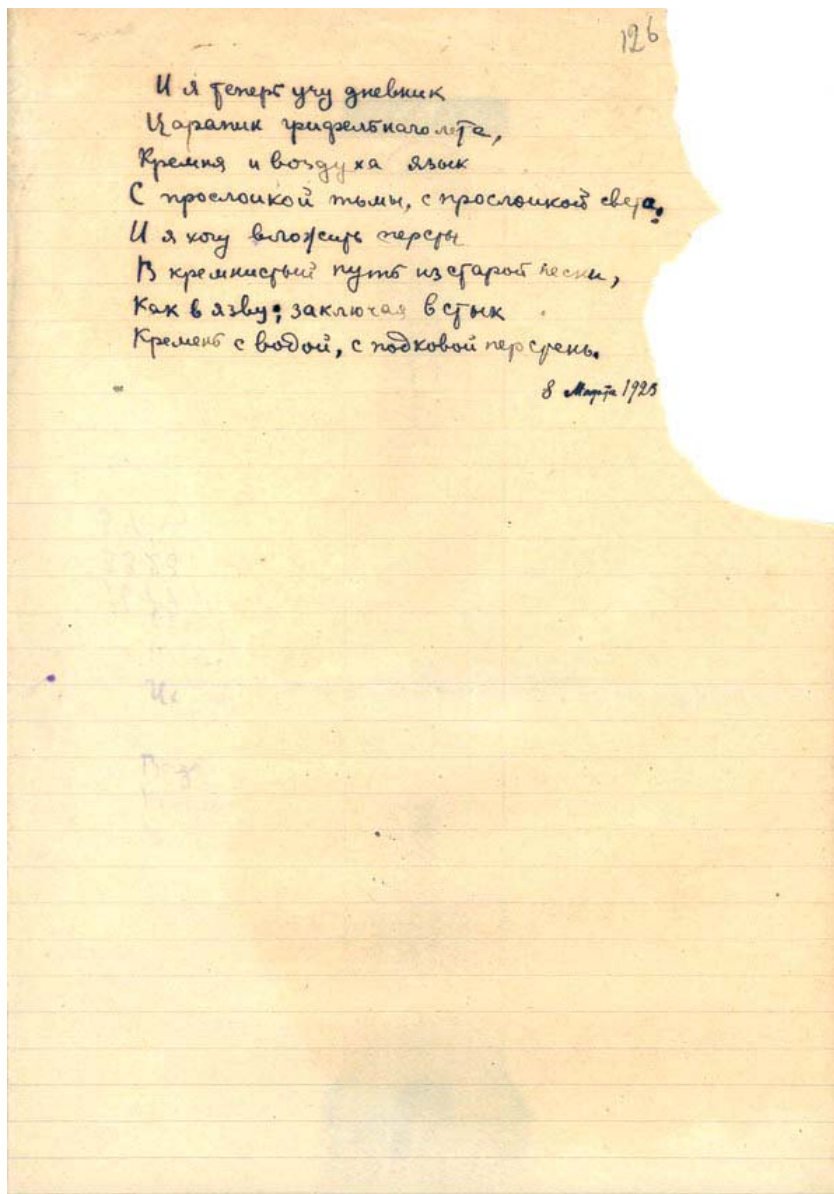 126
И я теперь учу дневник
Царапин грифельнаго лета,
Кремня и воздуха язык
С прослойкой тьмы, с прослойкой света.
И я хочу вложить персты
В кремнистый путь из старой песни,
Как в язву, заключая в стык
Кремень с водой, с подковой перстень.
8 Марта 1923